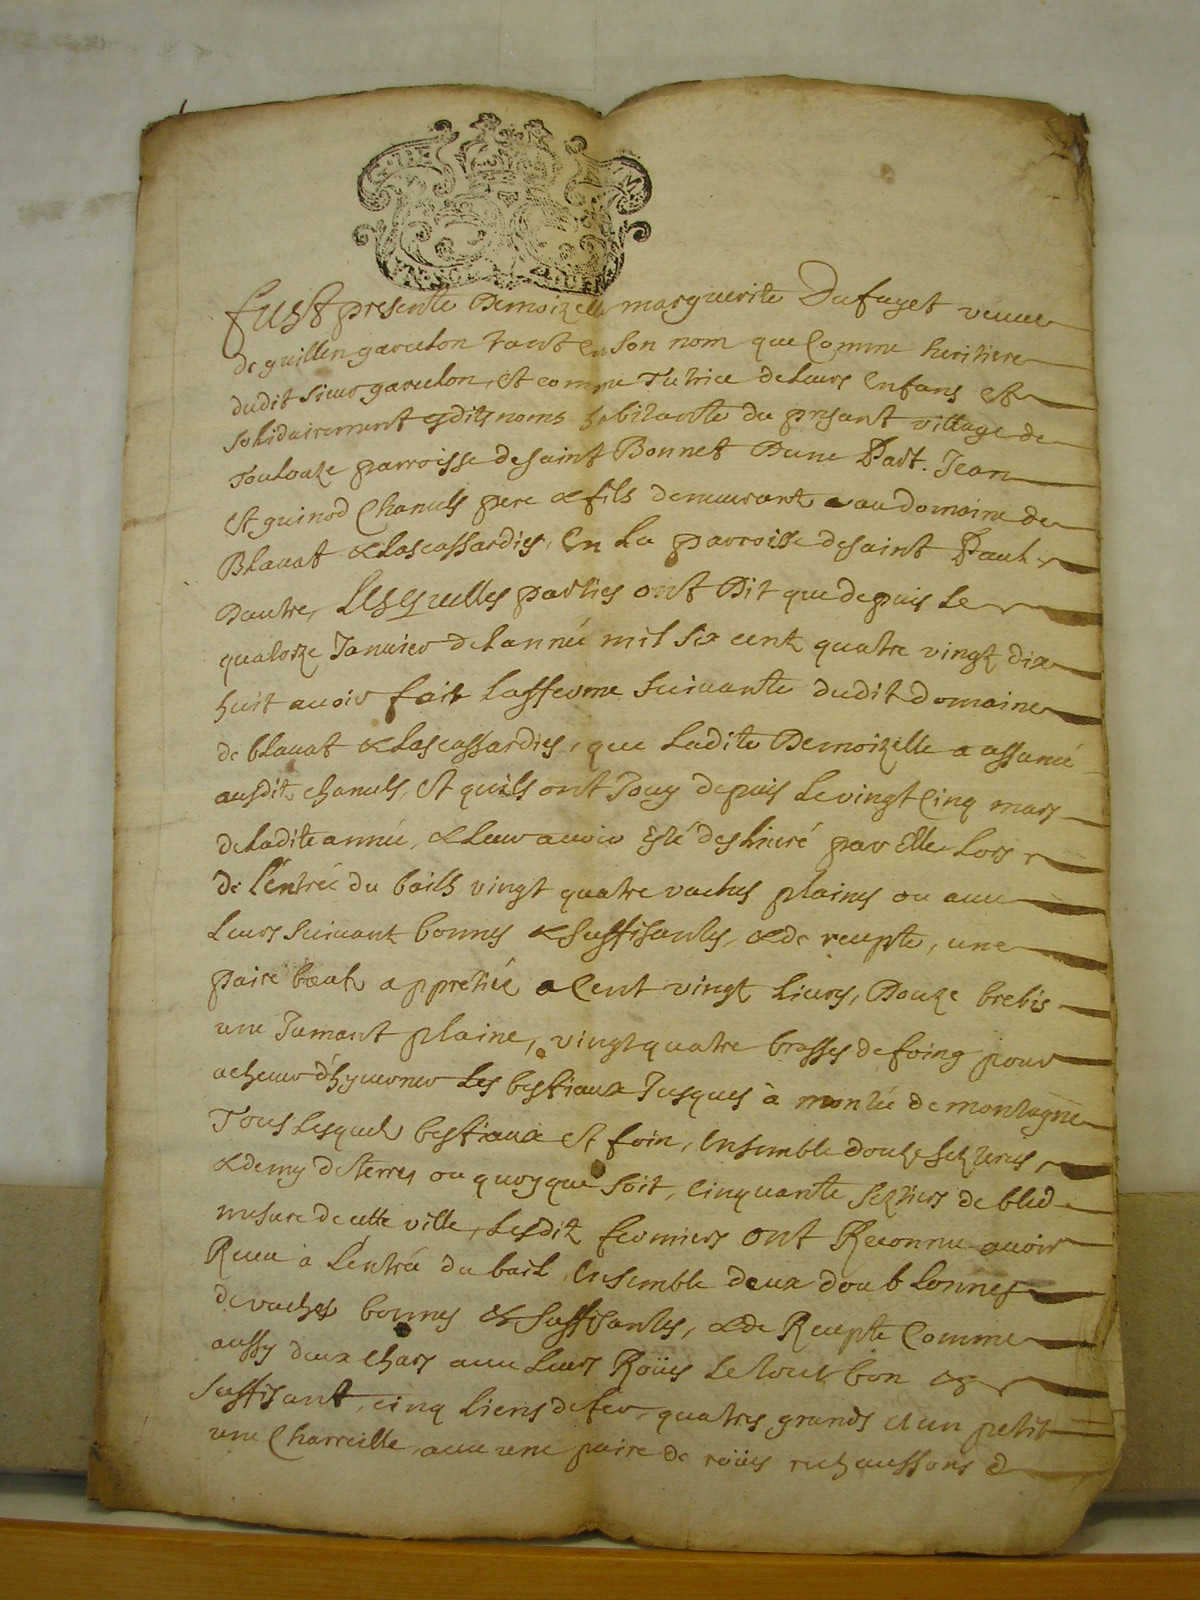 Fust presente Demoizelle marguerite Dufayet veuue
de guillen garcelon tant en son nom que Comme heritiere
dudit sieur garcelon, et comme Tutrice de leurs Enfans et
solidairement esdits noms habitante du presant village de
Toulouze parroisse de saint Bonnet Dune Part. Jean
et guinod Chanuls pere & fils demeurant au domaine de
Blauat & Lascassardies, En La parroisse de saint Paul
Dautre, Lesquelles parties ont Dit que depuis Le
quatorze Januier de Lannée mil six cent quatre vingt dix
huit auoir fait Lafferme suiuante dudit domaine
de blauat & Lascassardies, que Ladite Demoizelle a affermé
ausdit chanuls, et quils ont Jouy depuis Le vingt Cinq mars
de Ladite année, & Leur auoir esté deshiuré par Elle Lors
de L'entrée du bailh vingt quatre vaches plaines ou auec
Leurs suiuant bonnes & suffisantes, & de recepte, une
paire bœufs appretiée a Cent vingt Liures, Douze brebis
une Jumant plaine, vingt quatre brasses de foing pour
acheuer d'hyuerner Les bestiaux Jusques à montée de montagne
Tous Lesquels bestiaux et foin, Ensemble douze sezterées
& demy de terres ou quoy que soit, Cinquante seztiers de bled
mesure de cette ville, Lesdit fermiers ont Reconnu auoir
Receu à Lentrée du bail Ensemble deux doublonnes
de vaches bonnes & suffisantes, & de Recepte Comme
aussy deux Chars auec Leurs Roües Le tout bon &
suffisant, cinq Liens de fer, quatres grands et un petit
une Charreille, auec une paire de roües rechaussons d